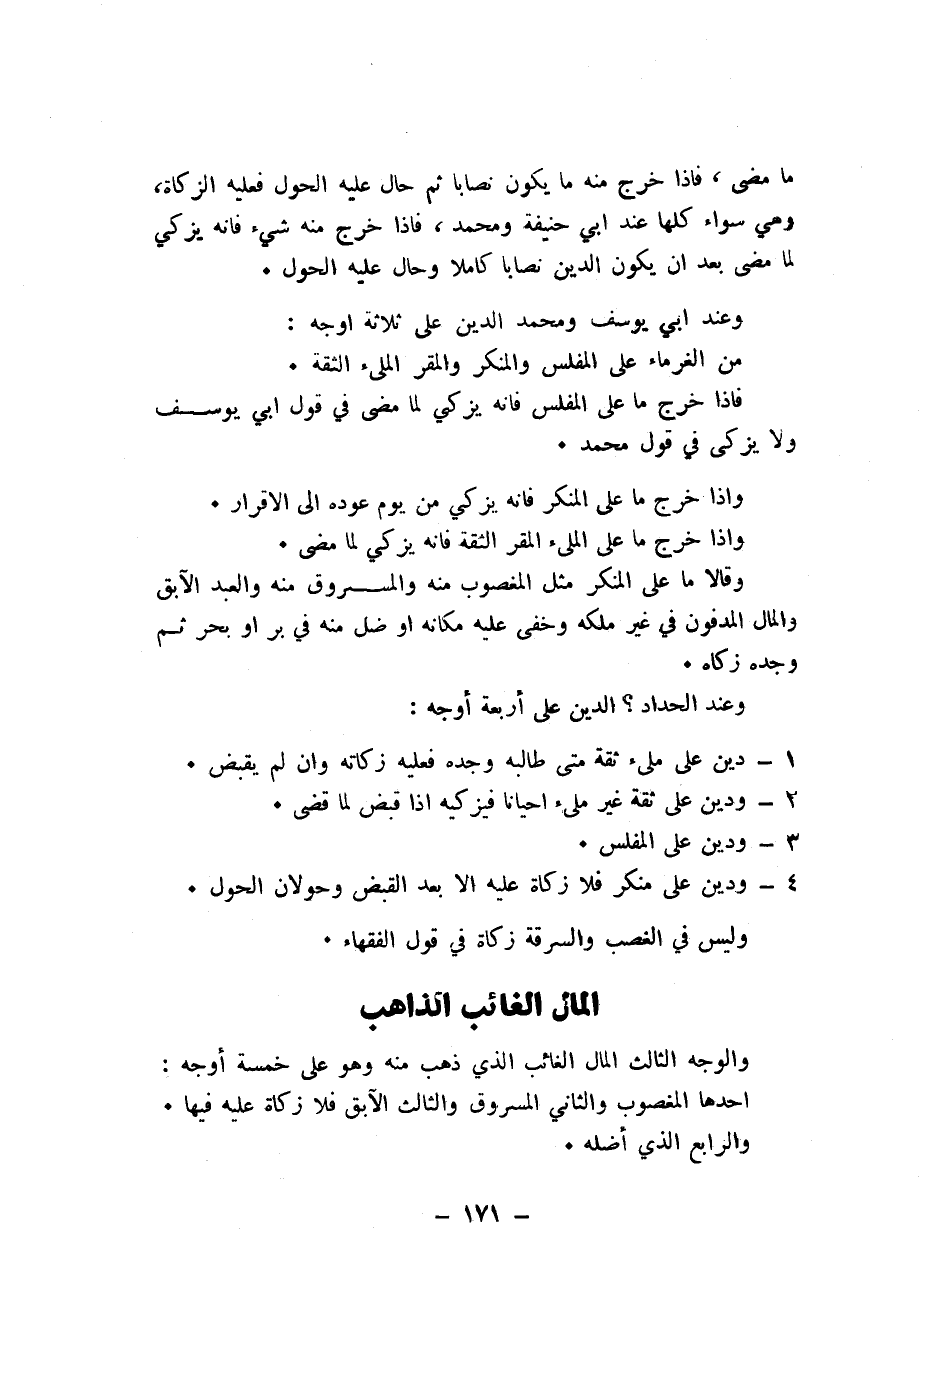 ما مضى ، فاذا خرج منه ما يكون نصابا ثم حال عليه الحول فعليه الزكاة،
وهي سواء كلها عند ابي حنيفة ومحمد ، فاذا خرج منه شيء فانه يزكي
لما مضى بعد ان يكون الدين نصابا كاملا وحال عليه الحول •
وعند ابي يوسف ومحمد الدين على ثلاثة اوجه :
من الغرماء على المفلس والمنكر والمقر المليء الثقة •
فاذا خرج ما على المفلس فانه يزكي لما مضى في قول ابي يوســف
ولا يزكى في قول محمد •
واذا خرج ما على المنكر فانه يزكي من يوم عوده الى الاقرار •
واذا خرج ما على المليء المقر الثقة فانه يزكي لما مضى •
وقالا ما على المنكر مثل المغصوب منه والمســروق منه والعبد الآبق
والمال المدفون في غير ملكه وخفى عليه مكانه او ضل منه في بر او بحر ثـم
وجده زكاه •
وعند الحداد ؟ الدين على أربعة أوجه :
١ – دين على مليء ثقة متى طالبه وجده فعليه زكاته وان لم يقبض •
٢ – ودين على ثقة غير مليء احيانا فيزكيه اذا قبض لما قضى •
٣ – ودين على المفلس •
٤ – ودين على منكر فلا زكاة عليه الا بعد القبض وحولان الحول •
وليس في الغصب والسرقة زكاة في قول الفقهاء •
المال الغائب الذاهب
والوجه الثالث المال الغائب الذي ذهب منه وهو على خمسة أوجه :
احدها المغصوب والثاني المسروق والثالث الآبق فلا زكاة عليه فيها •
والرابع الذي أضله •
– ١٧١ –